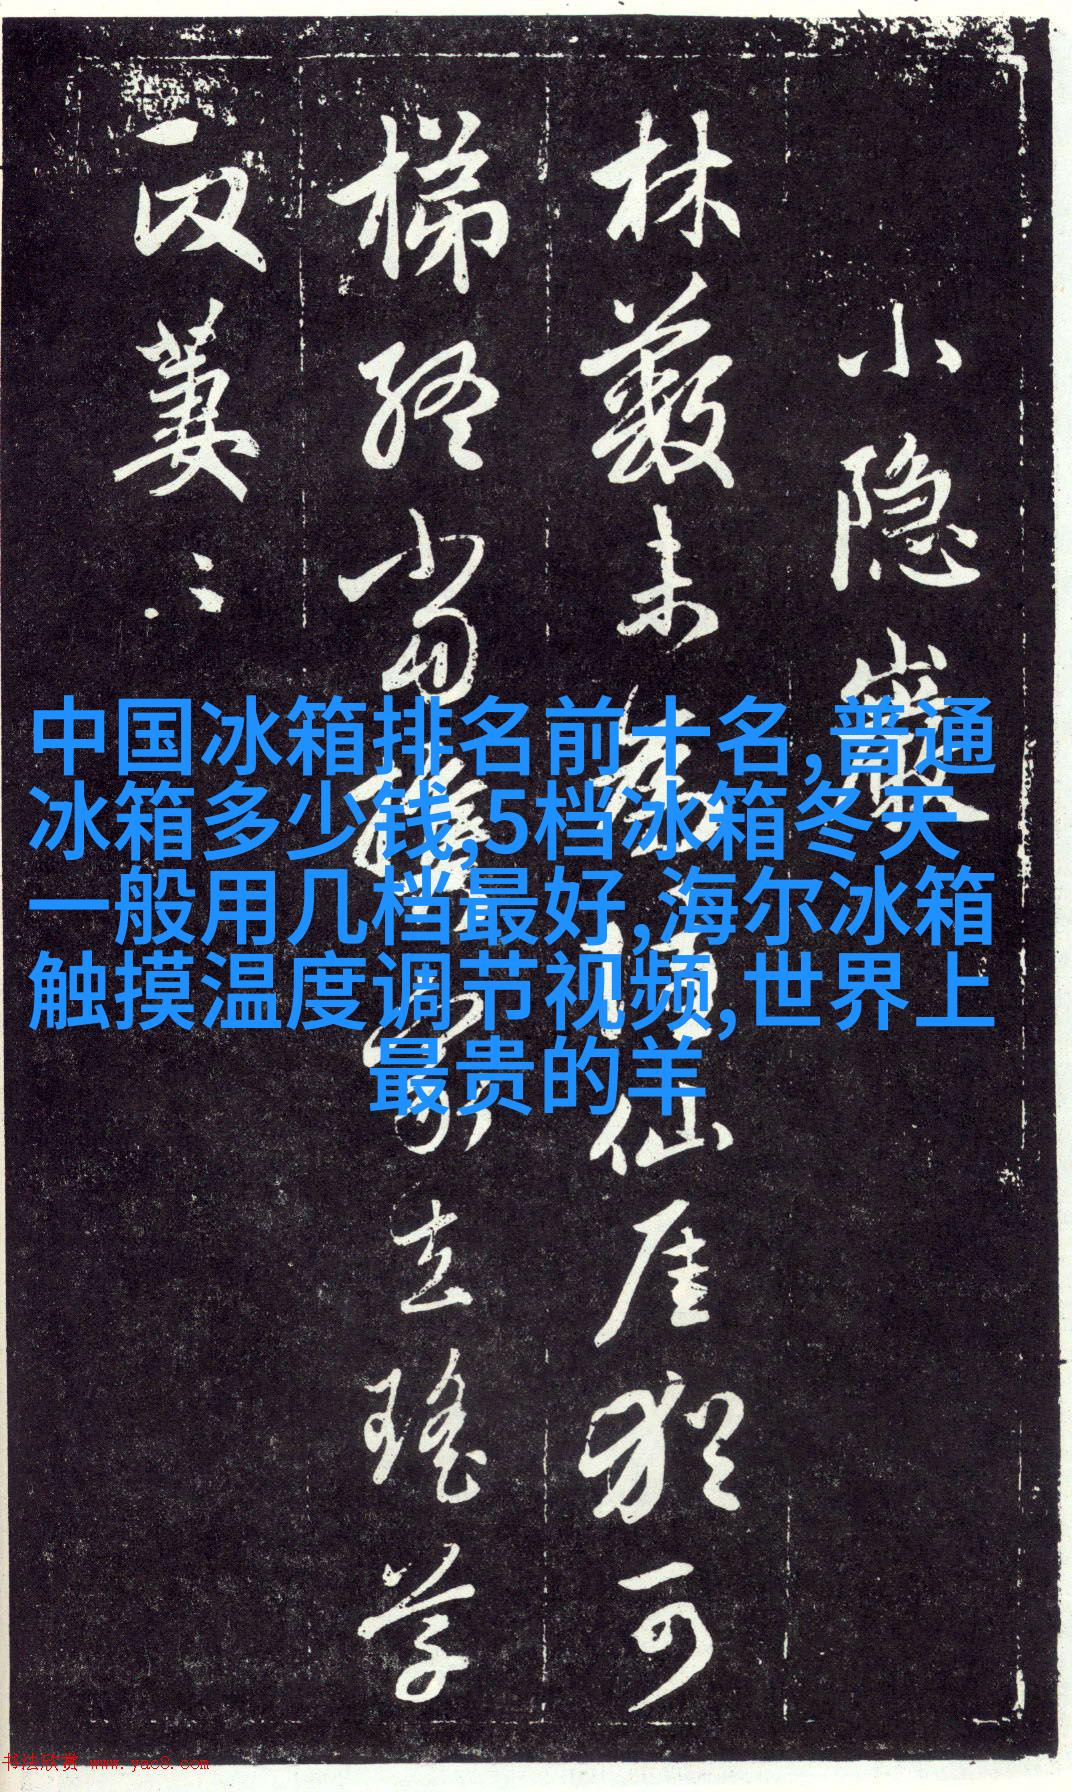 小隐巖
林薮未仙厓猶可
梯終當家去瑤草
萋〻
中国冰箱排名前十名,普通
冰箱多少钱,5档冰箱冬天
一般用几档最好,海尔冰箱
触摸温度调节视频,世界上
最贵的羊
书法欣赏 www.yac8.com